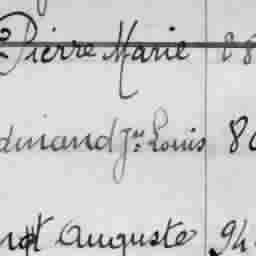 Pierre Marie 88
dinand Jn Louis 80
Auguste 94